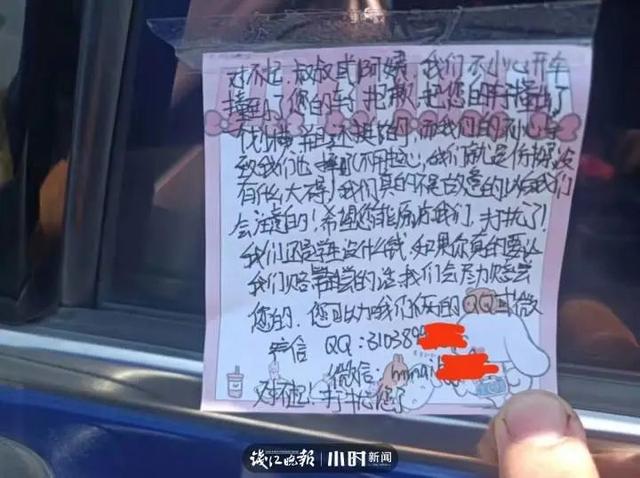 对不起,叔叔或阿姨,我们不小心开车
撞到了您的车,抱歉,把您的车撞出了
我们的不小心导
致我们也 不开心,我们就是
有什么大碍!我们真的不是故意的以后我们
会注意的!希望您能原谅我们,打扰了!
我们还是学生没什么钱,如果你真的要让
我们赔 偿的话,我们会尽力赔尝
您的.您可以加我们 的QQ或微
信 QQ:310389
微信:
对不起!打扰您了
钱江晚报 小时新闻